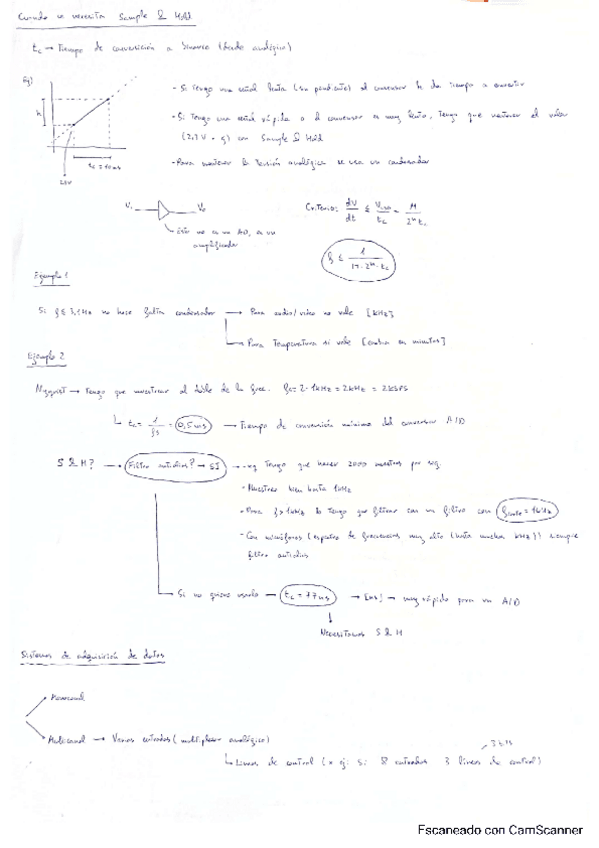 Cuando se necesita Sample & Hold
tc → Tiempo de conversión a binario (dado analógico)
Ej)
- Si tengo una señal lenta (su pendiente) el conversor le da tiempo a convertir
- Si tengo una señal rápida o el conversor es muy lento, tengo que mantener el valor
(2,5V - ej) con Sample & Hold
- Para mantener la tensión analógica se usa un condensador
h
tc = 10ms
2,5V
Vi
Vo
Esto no es un AD, es un
amplificador
Criterio: dV/dt ≤ / tc = M / 2ⁿ tc
f ≤ 1 / π · 2ⁿ · tc
Ejemplo 1
Si f ≤ 3,1Hz no hace falta condensador → Para audio/video no vale [kHz]
→ Para temperatura si vale [cambia en minutos]
Ejemplo 2
Nyquist → Tengo que muestrear al doble de la frec. fs = 2 · 1kHz = 2kHz = 2kSPS
tc = 1/fs = 0,5ms → Tiempo de conversión mínimo del conversor A/D
S & H? → Filtro antialias? → SI → Tengo que hacer 2000 muestras por seg.
- Muestreo bien hasta 1kHz
- Para f > 1kHz lo tengo que filtrar con un filtro con fcorte = 1kHz
- Con micrófonos (espectro de frecuencias muy alto (hasta mucha kHz)) siempre
filtro antialias
Si no quiero usarlo → tc = 77ns → [ns] → muy rápido para un A/D
Necesitamos S & H
Sistemas de adquisición de datos
Monocanal
Multicanal → Varias entradas (multiplexor analógico)
3 bits
Lineas de control (ej: si 8 entradas 3 lineas de control)
Escaneado con CamScanner